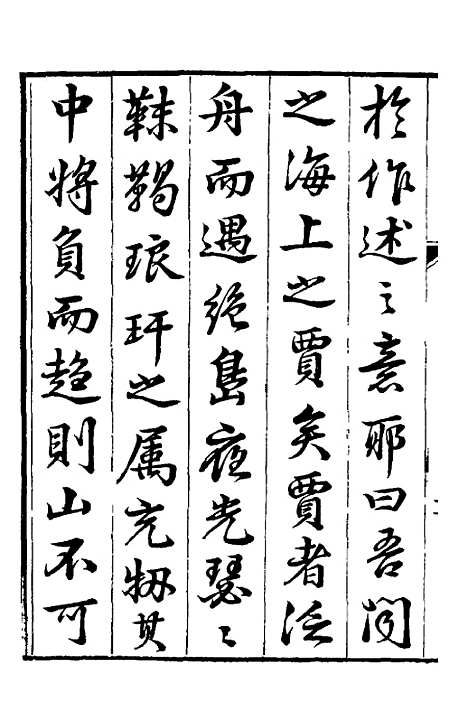 於作述之意耶曰吾聞
之海上之賈矣賈者泛
舟而遇絕島夜光瑟瑟
靺鞨琅玕之属充牣其
中將負而趨則山不可